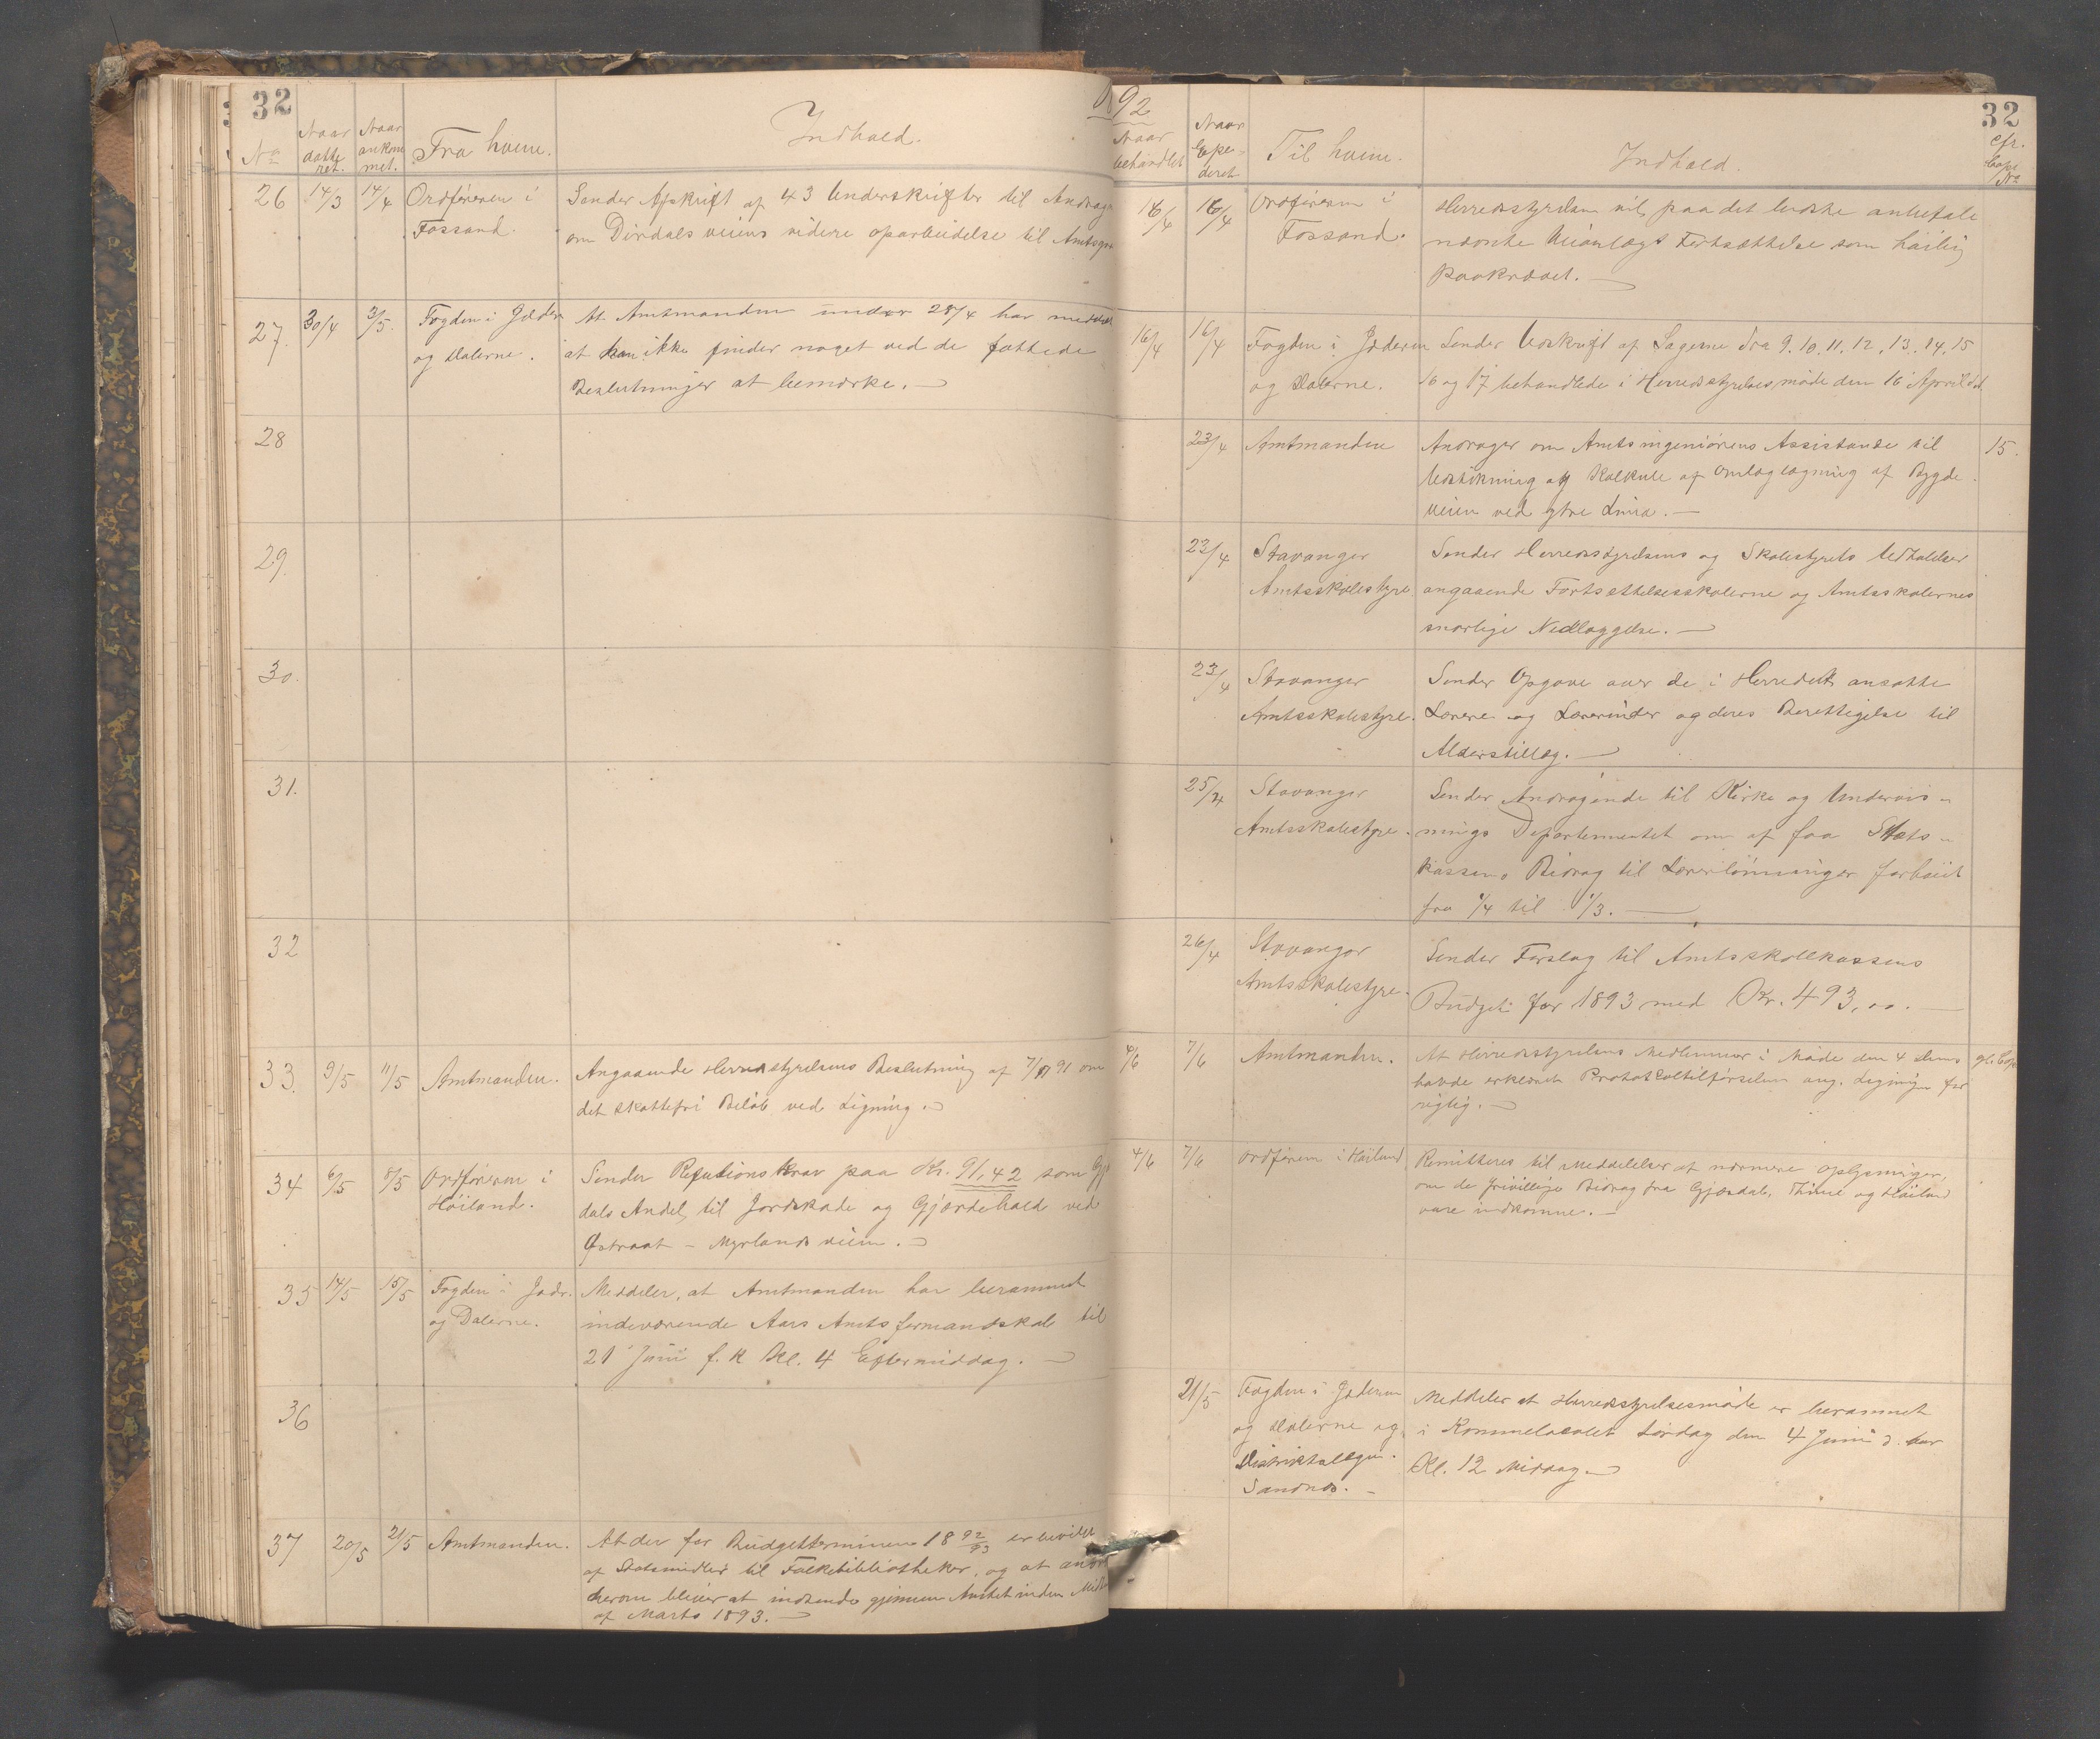 32
No
Naar datteret.
Naar ankommet.
Fra hvem.
Indhold.
26 14/3 14/4 Ordføreren i Sender Afskrift af 43 Underskrifter til
Fossand. om Dirdalsveiens videre oparbeidelse til
27. 30/4 3/5. Fogden i At Amtmanden under 28/4 har
og Dalerne. at han ikke finder noget ved de fattede
Beslutninger at bemærke. —
28
29.
30.
31.
32
33. 9/5 11/5 Amtmanden. Angaaende Herredsstyrelsens Beslutning af 91 om
det skattefri Beløb ved Ligning. —
34 6/5 8/5 Ordføreren i Sender Refusionskrav paa Kr. 91,42 som
Høiland. dals Andel til Jordskade og Gjærdehold ved
Østraat – Myrlandsveien. —
35 14/5 15/5 Fogden i Jæd. Meddeler, at Amtmanden har berammet
og Dalerne. indeværende Aars Amtsformandskab til
21 Juni f. K Kl. 4 Eftermiddag. —
36
37 20/5 21/5 Amtmanden. At der for Budgetterminen 18 92/93 er bevilget
af Statsmidler til Folkebibliotheker, og at
herom bliver at indsende gjennem Amtet inden
af Marts 1893. —
92
32
Naar behandlet
Naar Expederet
Til hvem.
Indhold.
cfr.
Kopi
No
16/4 16/4 Ordføreren i Herredsstyrelsen vil paa det bedste anbefale
Fossand. nævnte Veianlægs Fortsættelse som høilig
paakrævet. —
16/4 16/4 Fogden i Jæderen Sender Udskrift af Sagerne No 9. 10. 11. 12. 13. 14. 15
og Dalerne. 16 og 17 behandlede i Herredsstyrelsesmøde den 16 April
23/4 Amtmanden Andrager om Amtsingeniørens Assistance til 15.
Udstikning og Kalkule af Omlægning af Bygde
veien ved ytre Lima. —
23/4 Stavanger Sender Herredsstyrelsens og Skolestyrets Udtalelser
Amtsskolestyre angaaende Fortsættelsesskolerne og Amtsskolernes
snarlige Nedlæggelse. —
23/4 Stavanger Sender Opgave over de i Herredet ansatte
Amtsskolestyre. Lærere og Lærerinder og deres Berettigelse til
Alderstillæg. —
25/4 Stavanger Sender Andragende til Kirke og Undervis-
Amtsskolestyre. nings Departementet om at faa Stats-
kassens Bidrag til Lærerlønninger forhøiet
fra 1/4 til 1/3. —
26/4 Stavanger Sender Forslag til Amtsskolekassens
Amtsskolestyre. Budget for 1893 med Kr. 493,00. —
4/6 7/6 Amtmanden. At Herredsstyrelsens Medlemmer i Møde den 4 dens
havde erklæret Protokoltilførselen ang. Ligningen for
rigtig. —
4/6 7/6 Ordføreren i Høiland Remitteres til Meddelelse af nærmere Oplysninger,
om de frivillige Bidrag fra Gjesdal, Thime og Høiland
vare indkomne. —
21/5 Fogden i Jæderen Meddeler at Herredsstyrelsesmøde er berammet
og Dalerne og i Kommelocalet Lørdag den 4 Juni
Distriktslægen. Kl. 12 Middag. —
Sandnæs. —